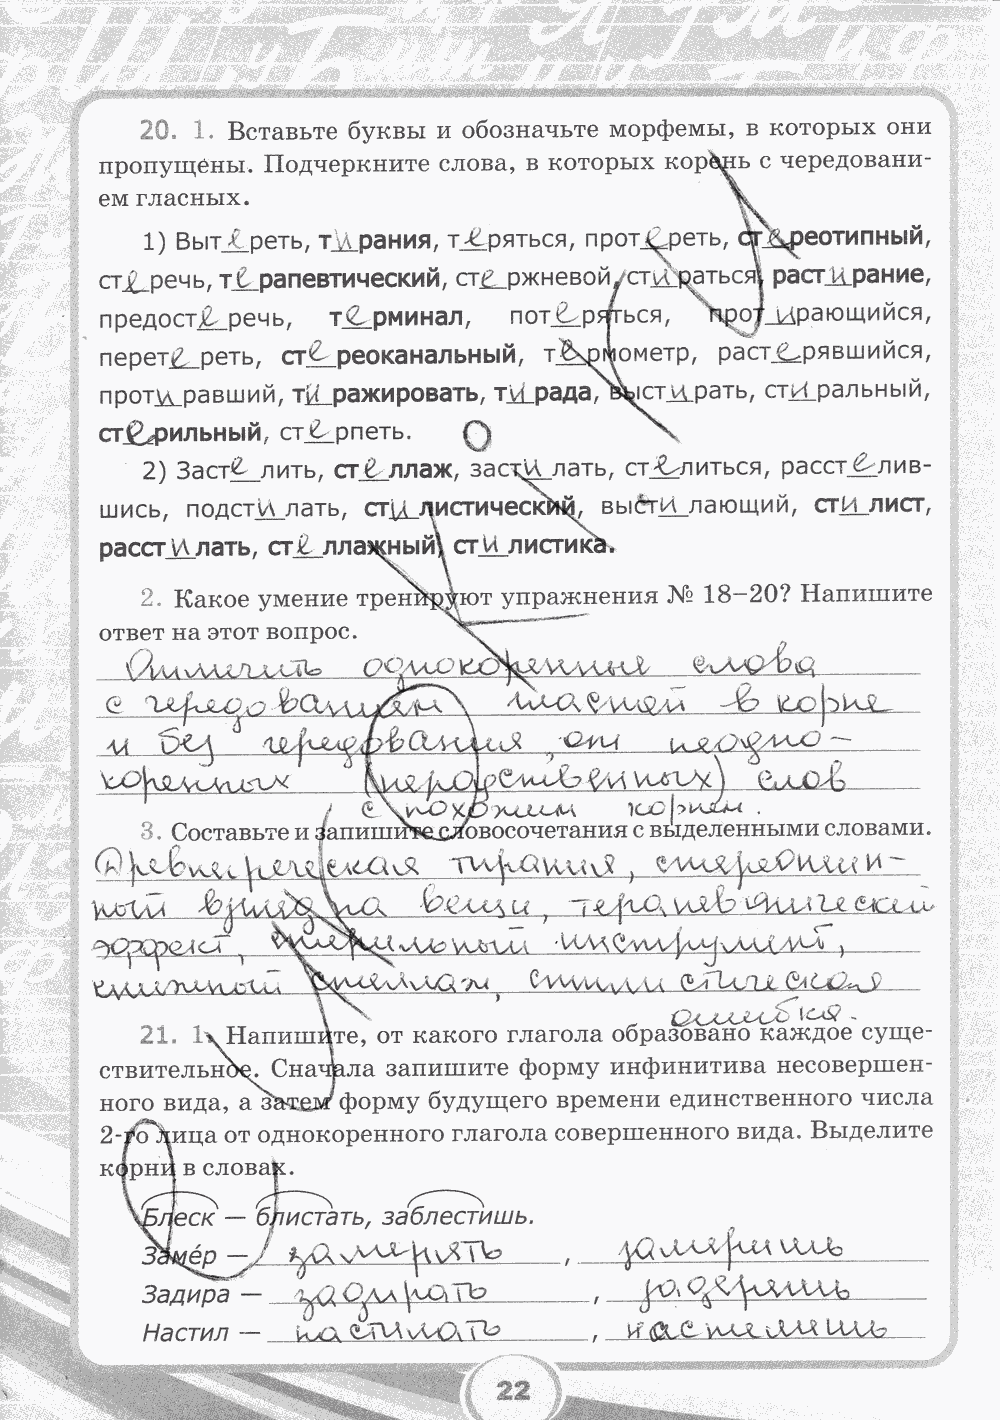 20. 1. Вставьте буквы и обозначьте морфемы, в которых они
пропущены. Подчеркните слова, в которых корень с чередовани-
ем гласных.
1) Вытереть, тирания, теряться, протереть, стереотипный,
стеречь, терапевтический, стержневой, стираться, растирание,
предостеречь, терминал, потеряться, протирающийся,
перетереть, стереоканальный, термометр, растерявшийся,
протиравший, тиражировать, тирада, выстирать, стиральный,
стерильный, стерпеть.
2) Застелить, стеллаж, застилать, стелиться, расстелив-
шись, подстилать, стилистический, выстилающий, стилист,
расстилать, стеллажный, стилистика.
2. Какое умение тренируют упражнения № 18–20? Напишите
ответ на этот вопрос.
Отличить однокоренные слова
с чередованием гласной в корне
и без чередования, от неодно-
коренных (неродственных) слов
с похожим корнем.
3. Составьте и запишите словосочетания с выделенными словами.
Древнегреческая тирания, стереотип-
ный взгляд на вещи, терапевтический
эффект, стерильный инструмент,
книжный стеллаж, стилистическая
ошибка.
21. 1. Напишите, от какого глагола образовано каждое суще-
ствительное. Сначала запишите форму инфинитива несовершен-
ного вида, а затем форму будущего времени единственного числа
2-го лица от однокоренного глагола совершенного вида. Выделите
корни в словах.
Блеск — блистать, заблестишь.
Заме́р — замерять, замеришь
Задира — задирать, задерёшь
Настил — настилать, настелишь
22